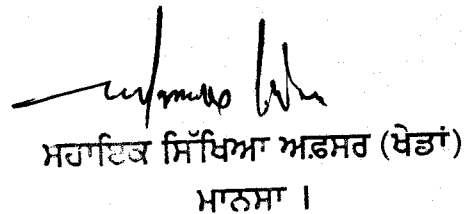 ਸਹਾਇਕ ਸਿੱਖਿਆ ਅਫ਼ਸਰ (ਖੇਡਾਂ)
ਮਾਨਸਾ ।